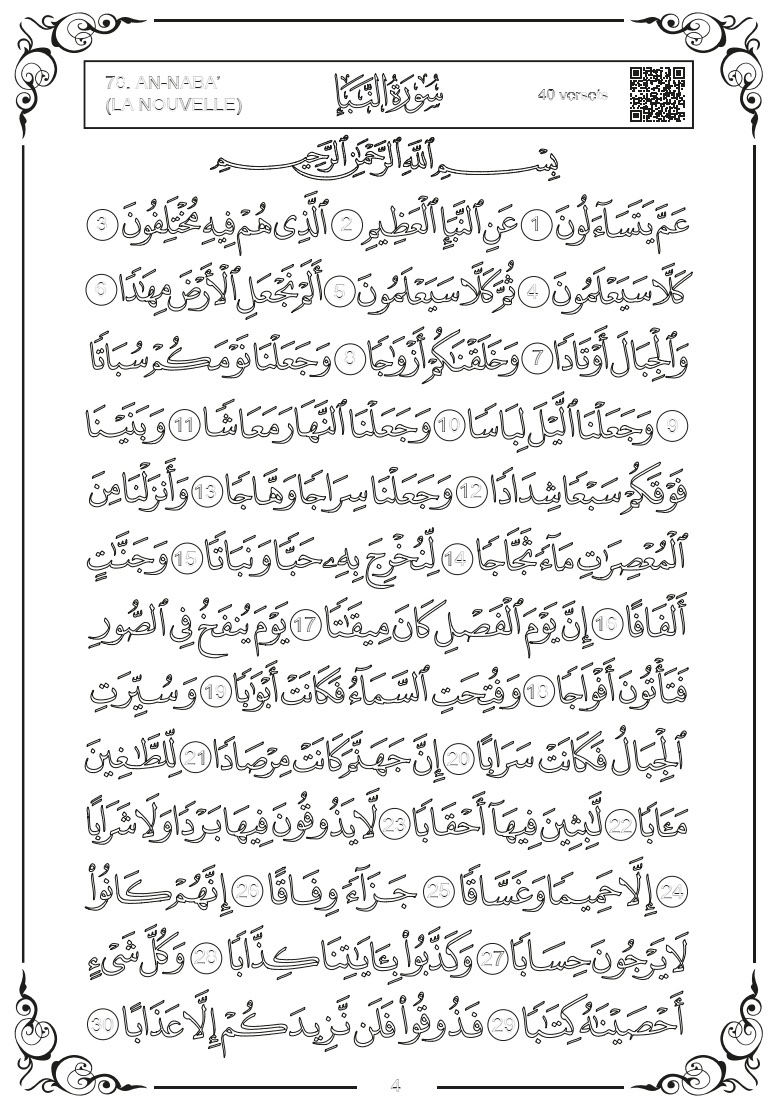 78. AN-NABA’
(LA NOUVELLE)
سُورَةُ النَّبَإِ
40 versets
بِسْمِ ٱللَّهِ ٱلرَّحْمَٰنِ ٱلرَّحِيمِ
عَمَّ يَتَسَآءَلُونَ 1 عَنِ ٱلنَّبَإِ ٱلْعَظِيمِ 2 ٱلَّذِى هُمْ فِيهِ مُخْتَلِفُونَ 3
كَلَّا سَيَعْلَمُونَ 4 ثُمَّ كَلَّا سَيَعْلَمُونَ 5 أَلَمْ نَجْعَلِ ٱلْأَرْضَ مِهَٰدًا 6
وَٱلْجِبَالَ أَوْتَادًا 7 وَخَلَقْنَٰكُمْ أَزْوَٰجًا 8 وَجَعَلْنَا نَوْمَكُمْ سُبَاتًا
9 وَجَعَلْنَا ٱلَّيْلَ لِبَاسًا 10 وَجَعَلْنَا ٱلنَّهَارَ مَعَاشًا 11 وَبَنَيْنَا
فَوْقَكُمْ سَبْعًا شِدَادًا 12 وَجَعَلْنَا سِرَاجًا وَهَّاجًا 13 وَأَنزَلْنَا مِنَ
ٱلْمُعْصِرَٰتِ مَآءً ثَجَّاجًا 14 لِّنُخْرِجَ بِهِۦ حَبًّا وَنَبَاتًا 15 وَجَنَّٰتٍ
أَلْفَافًا 16 إِنَّ يَوْمَ ٱلْفَصْلِ كَانَ مِيقَٰتًا 17 يَوْمَ يُنفَخُ فِى ٱلصُّورِ
فَتَأْتُونَ أَفْوَاجًا 18 وَفُتِحَتِ ٱلسَّمَآءُ فَكَانَتْ أَبْوَٰبًا 19 وَسُيِّرَتِ
ٱلْجِبَالُ فَكَانَتْ سَرَابًا 20 إِنَّ جَهَنَّمَ كَانَتْ مِرْصَادًا 21 لِّلطَّٰغِينَ
مَـَٔابًا 22 لَّٰبِثِينَ فِيهَآ أَحْقَابًا 23 لَّا يَذُوقُونَ فِيهَا بَرْدًا وَلَا شَرَابًا
24 إِلَّا حَمِيمًا وَغَسَّاقًا 25 جَزَآءً وِفَاقًا 26 إِنَّهُمْ كَانُوا۟
لَا يَرْجُونَ حِسَابًا 27 وَكَذَّبُوا۟ بِـَٔايَٰتِنَا كِذَّابًا 28 وَكُلَّ شَىْءٍ
أَحْصَيْنَٰهُ كِتَٰبًا 29 فَذُوقُوا۟ فَلَن نَّزِيدَكُمْ إِلَّا عَذَابًا 30
4